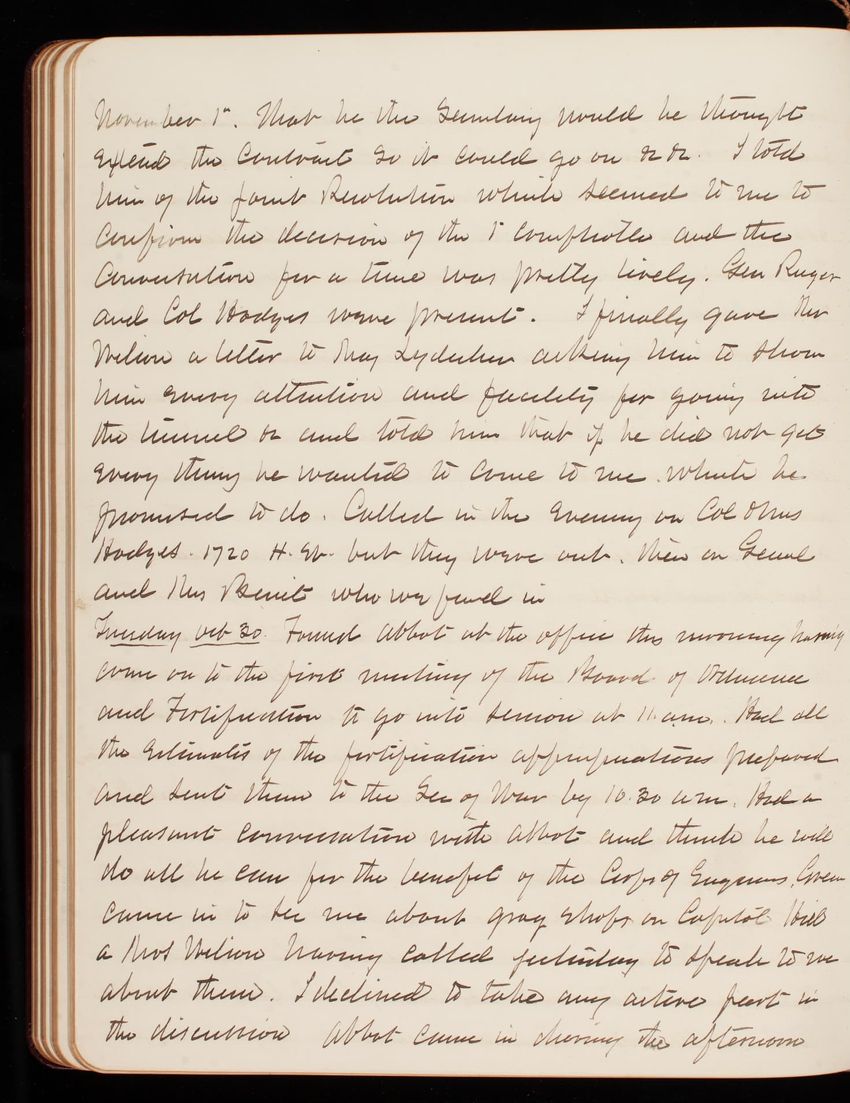 November 1st. That he the Secretary would he thought
extend the Contract so it could go on &c &c. I told
him of the Joint Resolution which seemed to me to
confirm the decision of the 1st Comptroller and the
Conversation for a time was pretty lively. Gen Ruger
and Col Hodges were present. I finally gave Mr
Wilson a letter to Maj Lydecker asking him to show
him every attention and facility for going into
the tunnel &c and told him that if he did not get
every thing he wanted to come to me. which he
promised to do. Called in the evening on Col & Mrs
Hodges. 1720 H. St. but they were out. then on General
and Mrs Benet who we found in
Tuesday Oct 30. Found Abbot at the office this morning having
come on to the first meeting of the Board of Ordnance
and Fortification to go into session at 11 a.m. Had all
the Estimates of the fortification appropriations prepared
and sent them to the Sec of War by 10.30 a.m. Had a
pleasant conversation with Abbot and think he will
do all he can for the benefit of the Corps of Engineers. Green
came in to see me about grog shops on Capitol Hill
a Mrs Wilson having called yesterday to speak to me
about them. I declined to take any active part in
the discussion Abbot came in during the afternoon